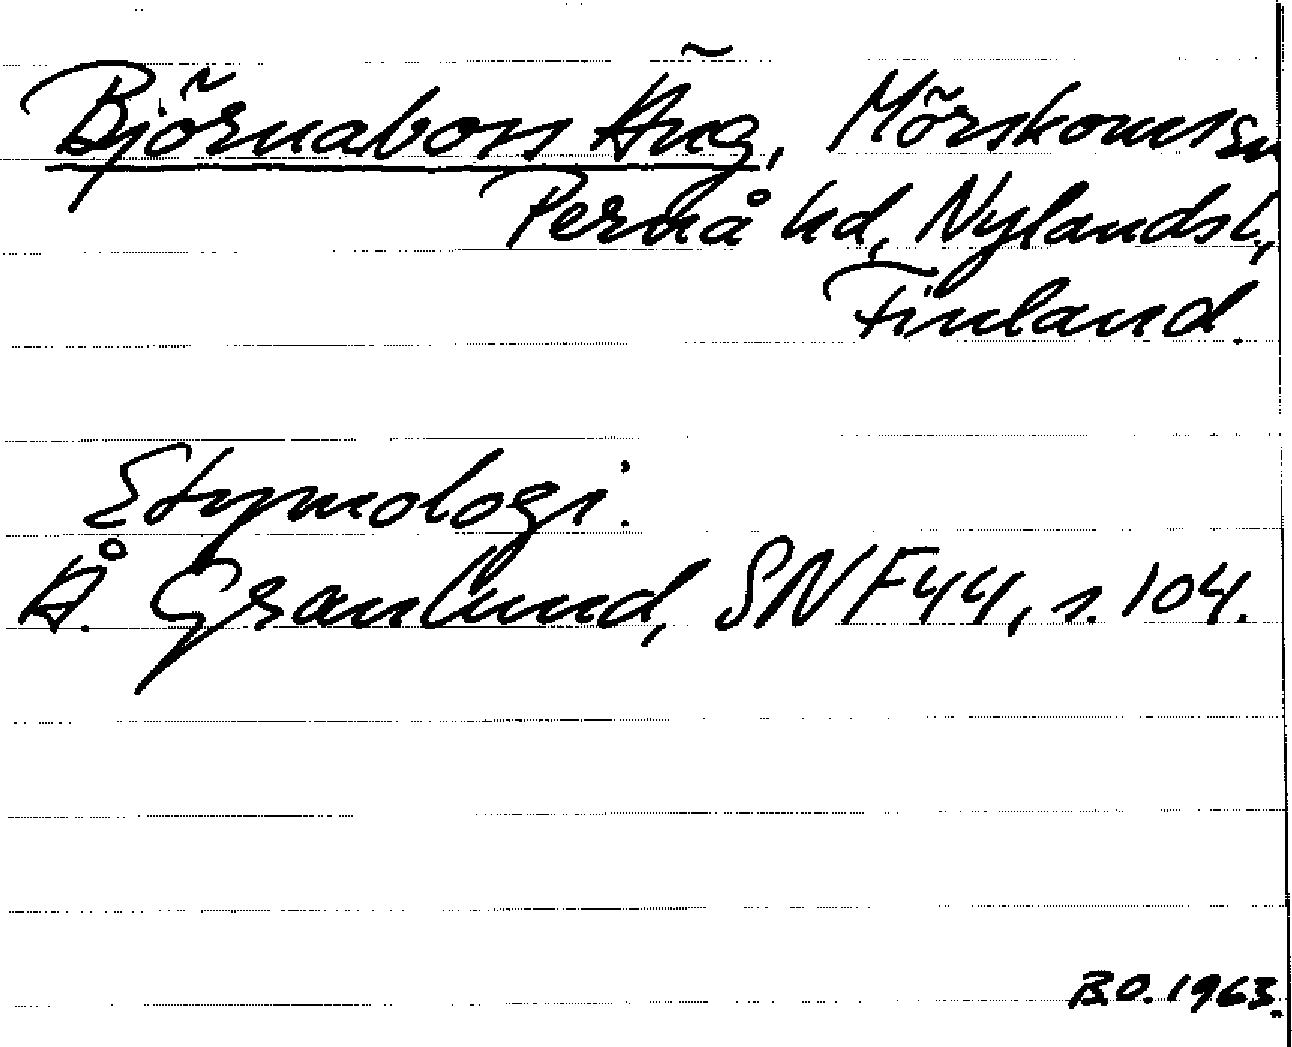 Björnaboss Äng, Mörskoms sn
Pernå hd, Nylands l.,
Finland.
Etymologi.
Å. Granlund, SNF 44, s. 104.
B.O. 1963.